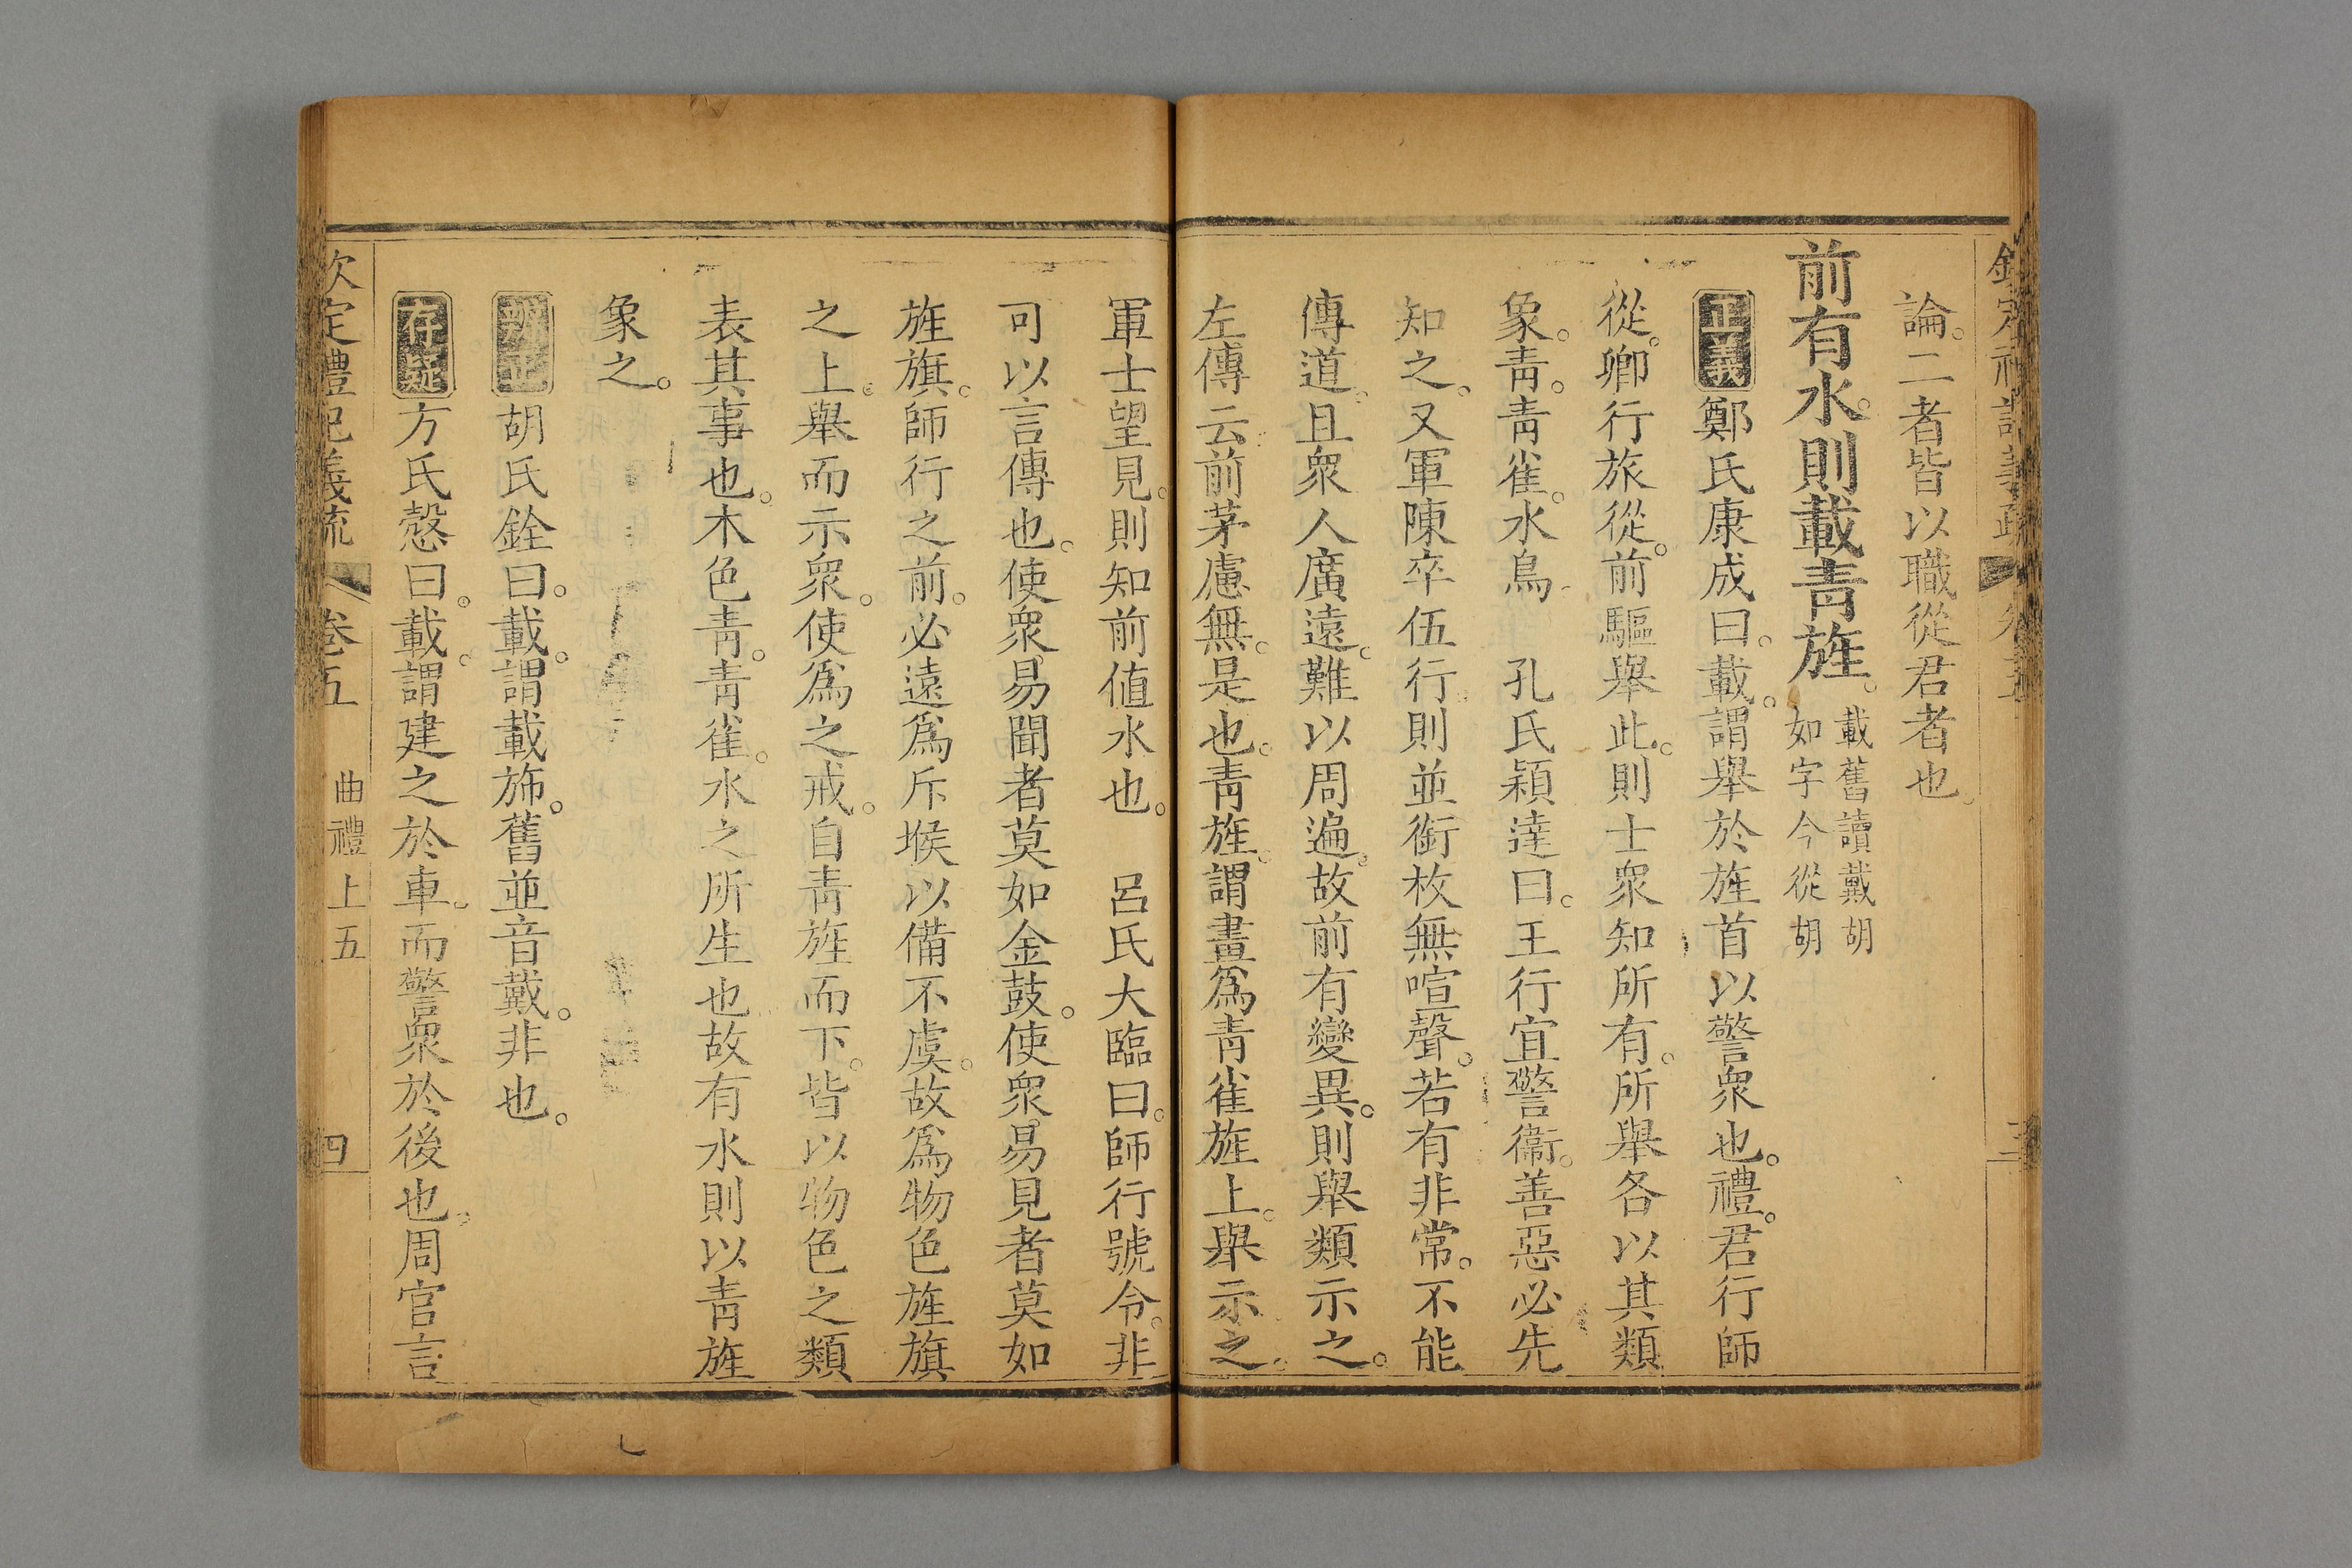 論。二者皆以職從君者也。
前有水。則載青旌。載舊讀戴胡
如字今從胡
正義鄭氏康成曰。載。謂舉於旌首以警衆也。禮。君行師
從。卿行旅從。前驅舉此。則士衆知所有。所舉各以其類
象。青。青雀。水鳥 孔氏穎達曰。王行宜警衞。善惡必先
知之。又軍陳卒伍行。則並銜枚無喧聲。若有非常。不能
傳道。且衆人廣遠。難以周遍。故前有變異。則舉類示之。
左傳云。前茅慮無。是也。青旌。謂畫爲青雀旌上。舉示之。
軍士望見。則知前值水也。 呂氏大臨曰。師行號令。非
可以言傳也。使衆易聞者莫如金鼓。使衆易見者莫如
旌旗。師行之前。必遠爲斥堠以備不虞。故爲物色旌旗
之上。舉而示衆。使爲之戒。自青旌而下。皆以物色之類
表其事也。木色青。青雀。水之所生也故有水則以青旌
象之。
辨正胡氏銓曰。載。謂載斾。舊並音戴。非也。
存疑方氏慤曰。載。謂建之於車。而警衆於後也。周官言
欽定禮記義疏 卷五 曲禮上五 四